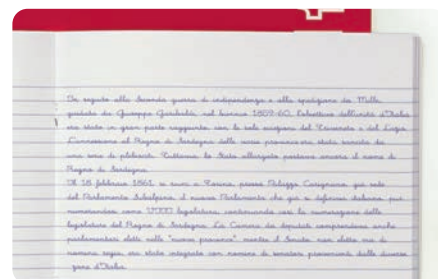 In seguito alla seconda guerra di indipendenza e alla spedizione dei Mille
guidata da Giuseppe Garibaldi, nel biennio 1859-60, l'obiettivo dell'unità d'Italia
era stato in gran parte raggiunto, con la sola eccezione del Triveneto e del Lazio.
L'annessione al Regno di Sardegna delle nuove province era stata sancita da
una serie di plebisciti. Tuttavia, lo Stato allargato portava ancora il nome di
Regno di Sardegna.
Il 18 febbraio 1861, si riunì a Torino, presso Palazzo Carignano, già sede
del Parlamento Subalpino, il nuovo Parlamento che già si definiva italiano, pur
numerandosi come VIII legislatura, continuando così la numerazione delle
legislature del Regno di Sardegna. La Camera dei deputati comprendeva anche
parlamentari eletti nelle "nuove province" mentre il Senato, non eletto ma di
nomina regia, era stato integrato con nomine di senatori provenienti dalle diverse
zone d'Italia.